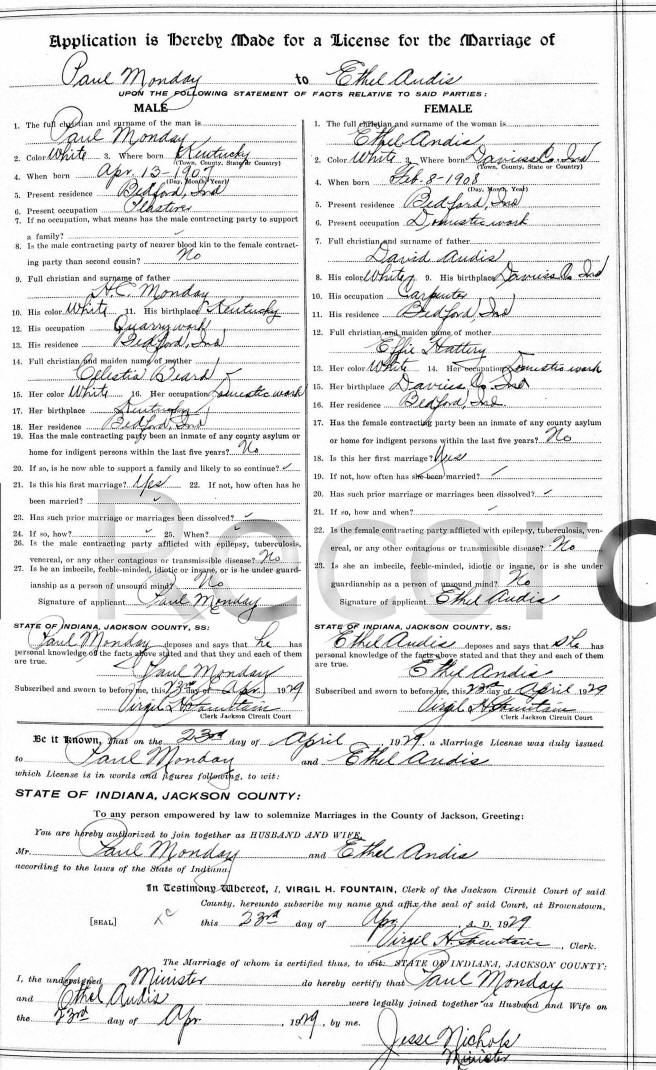 Application is Hereby Made for a License for the Marriage of
Paul Monday to Ethel Audis
UPON THE FOLLOWING STATEMENT OF FACTS RELATIVE TO SAID PARTIES:
MALE
1. The full christian and surname of the man is
Paul Monday
2. Color White 3. Where born Kentucky
(Town, County, State or Country)
4. When born Apr. 13-1907
(Day, Month, Year)
5. Present residence Bedford, Ind
6. Present occupation Plasterer
7. If no occupation, what means has the male contracting party to support
a family?
8. Is the male contracting party of nearer blood kin to the female contract-
ing party than second cousin? No
9. Full christian and surname of father
H.C. Monday
10. His color White 11. His birthplace Kentucky
12. His occupation Quarry work
13. His residence Bedford, Ind
14. Full christian and maiden name of mother
Celestia Beard
15. Her color White 16. Her occupation Domestic work
17. Her birthplace Kentucky
18. Her residence Bedford, Ind
19. Has the male contracting party been an inmate of any county asylum or
home for indigent persons within the last five years? No
20. If so, is he now able to support a family and likely to so continue? ✓
21. Is this his first marriage? Yes 22. If not, how often has he
been married? ✓
23. Has such prior marriage or marriages been dissolved? ✓
24. If so, how? ✓ 25. When? ✓
26. Is the male contracting party afflicted with epilepsy, tuberculosis,
venereal, or any other contagious or transmissible disease? No
27. Is he an imbecile, feeble-minded, idiotic or insane, or is he under guard-
ianship as a person of unsound mind? No
Signature of applicant Paul Monday
STATE OF INDIANA, JACKSON COUNTY, SS:
Paul Monday deposes and says that he has
personal knowledge of the facts above stated and that they and each of them
are true.
Paul Monday
Subscribed and sworn to before me, this 23rd day of Apr. 1929
Virgil H Fountain
Clerk Jackson Circuit Court
FEMALE
1. The full christian and surname of the woman is
Ethel Audis
2. Color White 3. Where born Daviess Co. Ind
(Town, County, State or Country)
4. When born Feb. 8-1908
(Day, Month, Year)
5. Present residence Bedford, Ind
6. Present occupation Domestic work
7. Full christian and surname of father
David Audis
8. His color White 9. His birthplace Daviess Co Ind
10. His occupation Carpenter
11. His residence Bedford, Ind
12. Full christian and maiden name of mother
Effie Hattery
13. Her color White 14. Her occupation Domestic work
15. Her birthplace Daviess Co. Ind
16. Her residence Bedford, Ind
17. Has the female contracting party been an inmate of any county asylum
or home for indigent persons within the last five years? No
18. Is this her first marriage? Yes
19. If not, how often has she been married? ✓
20. Has such prior marriage or marriages been dissolved? ✓
21. If so, how and when? ✓
22. Is the female contracting party afflicted with epilepsy, tuberculosis, ven-
ereal, or any other contagious or transmissible disease? No
23. Is she an imbecile, feeble-minded, idiotic or insane, or is she under
guardianship as a person of unsound mind? No
Signature of applicant Ethel Audis
STATE OF INDIANA, JACKSON COUNTY, SS:
Ethel Audis deposes and says that she has
personal knowledge of the facts above stated and that they and each of them
are true.
Ethel Audis
Subscribed and sworn to before me, this 23rd day of April 1929
Virgil H Fountain
Clerk Jackson Circuit Court
Record
Be it Known, that on the 23rd day of April, 1929, a Marriage License was duly issued
to Paul Monday and Ethel Audis
which License is in words and figures following, to wit:
STATE OF INDIANA, JACKSON COUNTY:
To any person empowered by law to solemnize Marriages in the County of Jackson, Greeting:
You are hereby authorized to join together as HUSBAND AND WIFE,
Mr. Paul Monday and Ethel Audis
according to the laws of the State of Indiana.
In Testimony Whereof, I, VIRGIL H. FOUNTAIN, Clerk of the Jackson Circuit Court of said
County, hereunto subscribe my name and affix the seal of said Court, at Brownstown,
[SEAL] this 23rd day of Apr, A. D. 1929
Virgil H. Fountain, Clerk.
The Marriage of whom is certified thus, to wit: STATE OF INDIANA, JACKSON COUNTY:
I, the undersigned Minister do hereby certify that Paul Monday
and Ethel Audis were legally joined together as Husband and Wife on
the 23rd day of Apr, 1929, by me.
Jesse Nichols
Minister